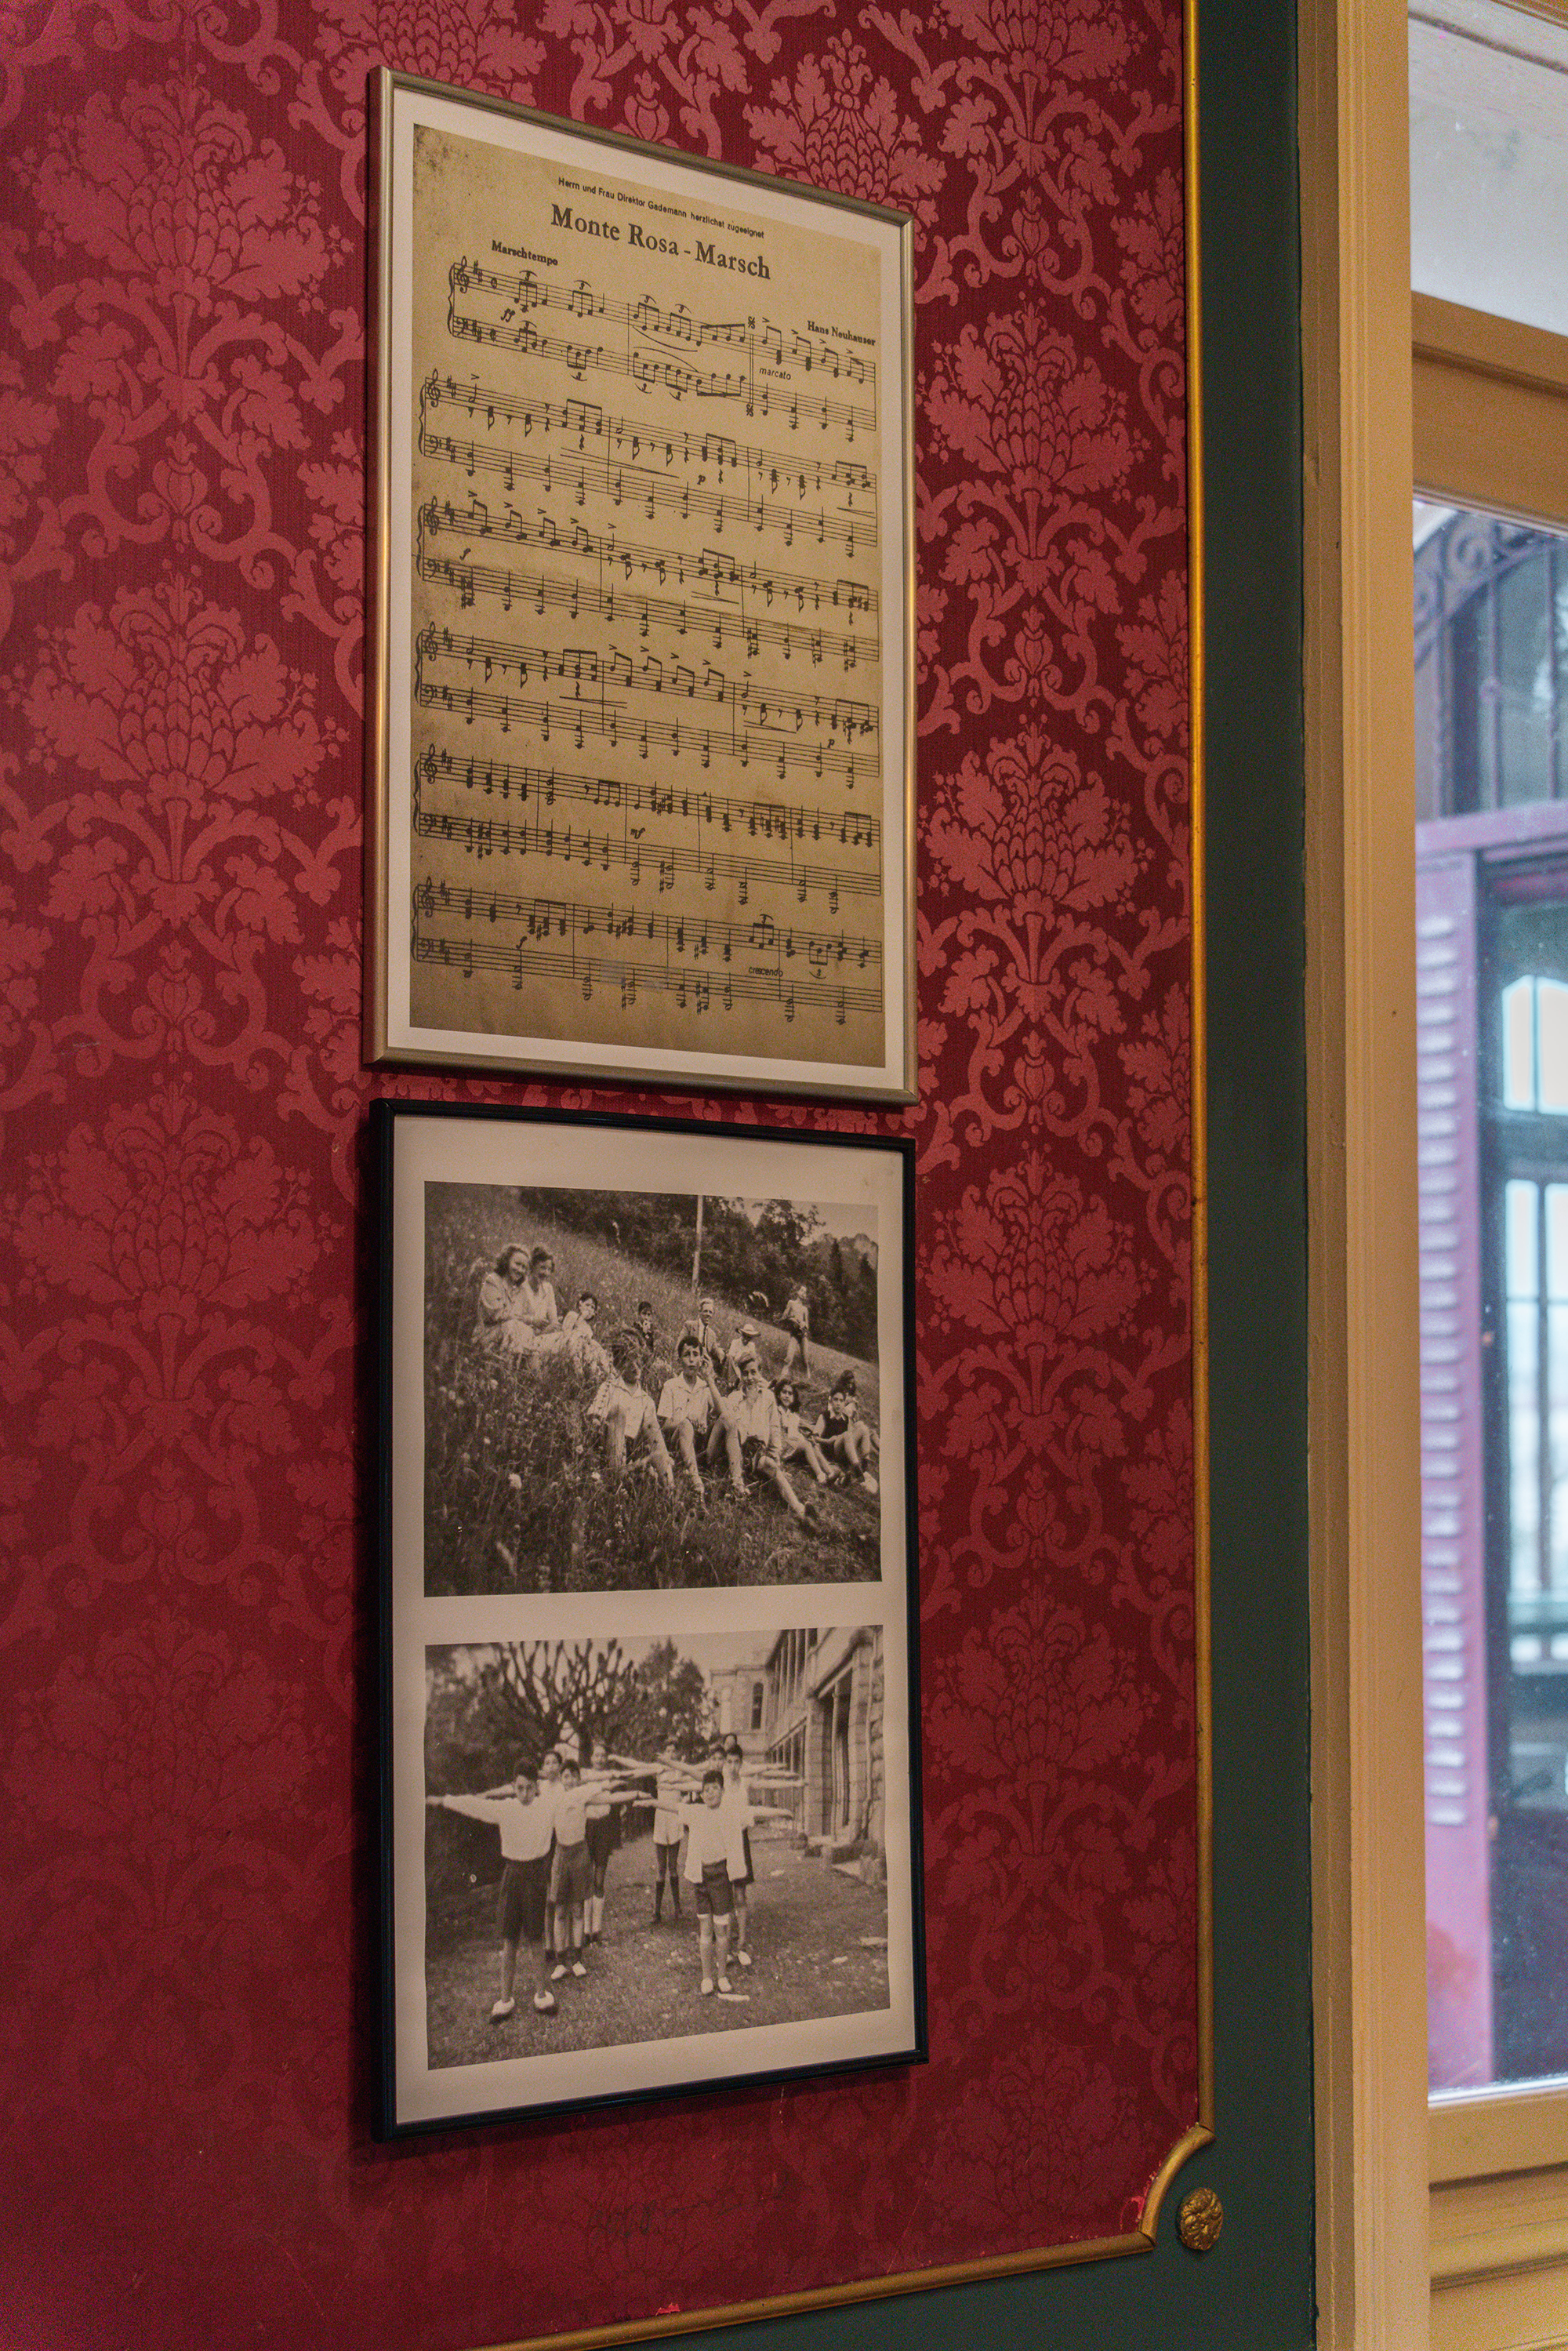 Herrn und Frau Direktor Gademann herzlichst zugeeignet
Monte Rosa - Marsch
Marschtempo
Hans Neuhauser
ff
marcato
crescendo